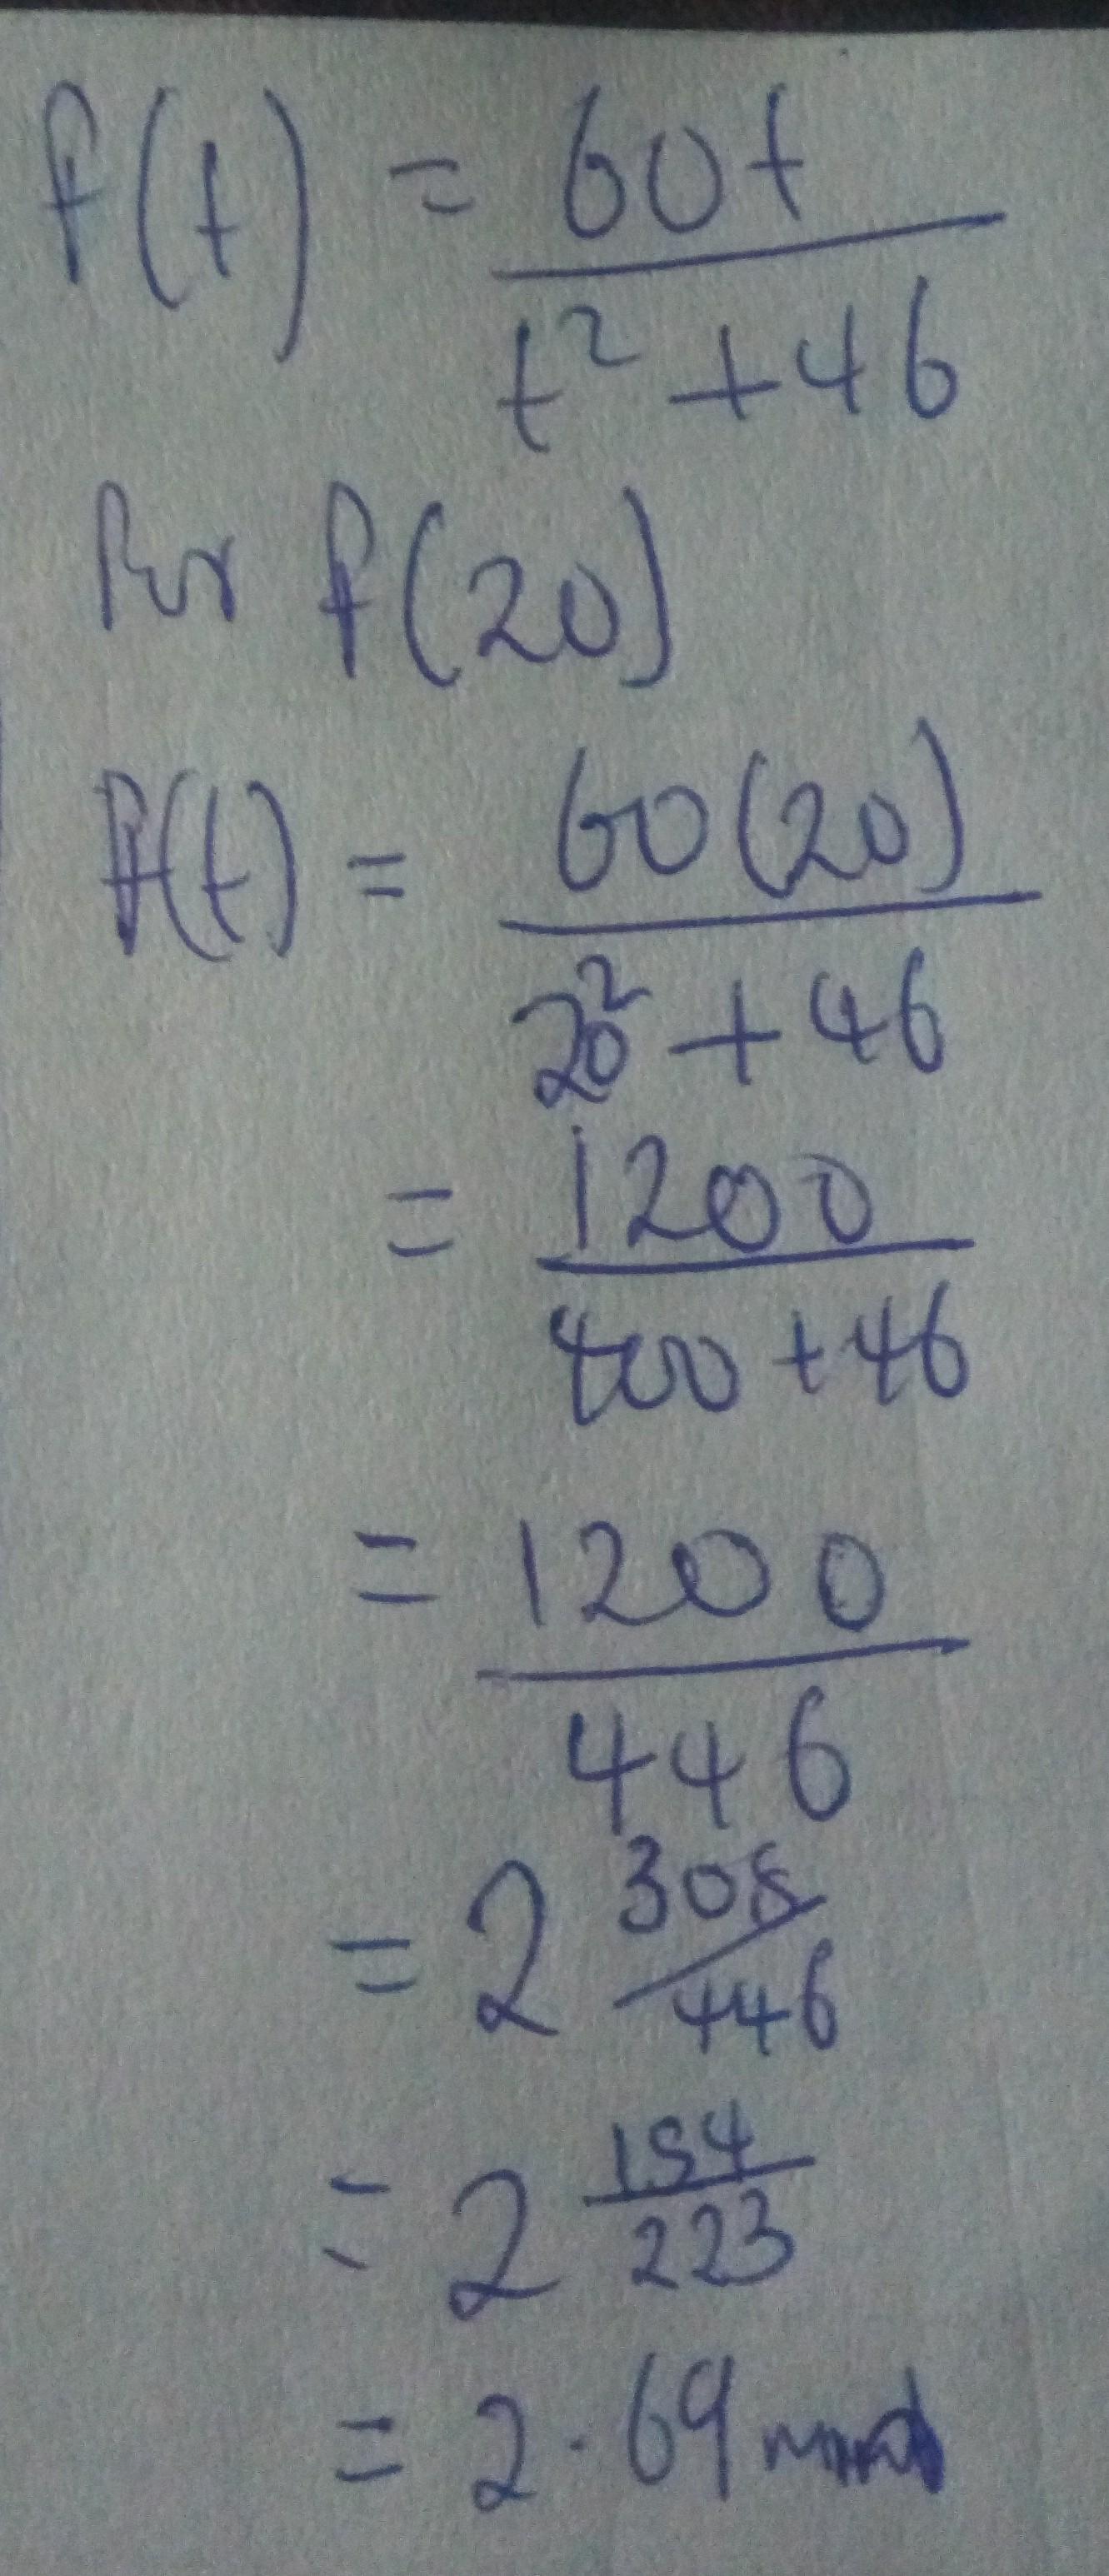 f(t) = 60t / t² + 46
For f(20)
f(t) = 60(20) / 20² + 46
= 1200 / 400 + 46
= 1200 / 446
= 2 308/446
= 2 154/223
= 2.69